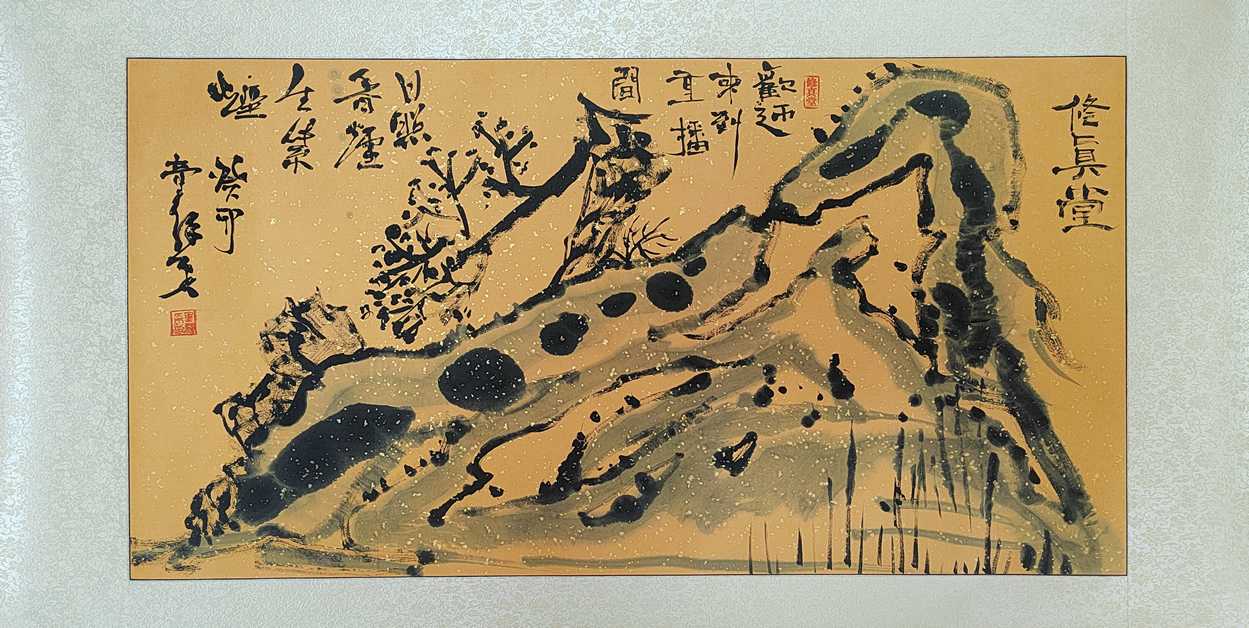 修真堂
修真堂
歡迎
來到
直播
間
日照
香煙
生紫
爐
癸卯